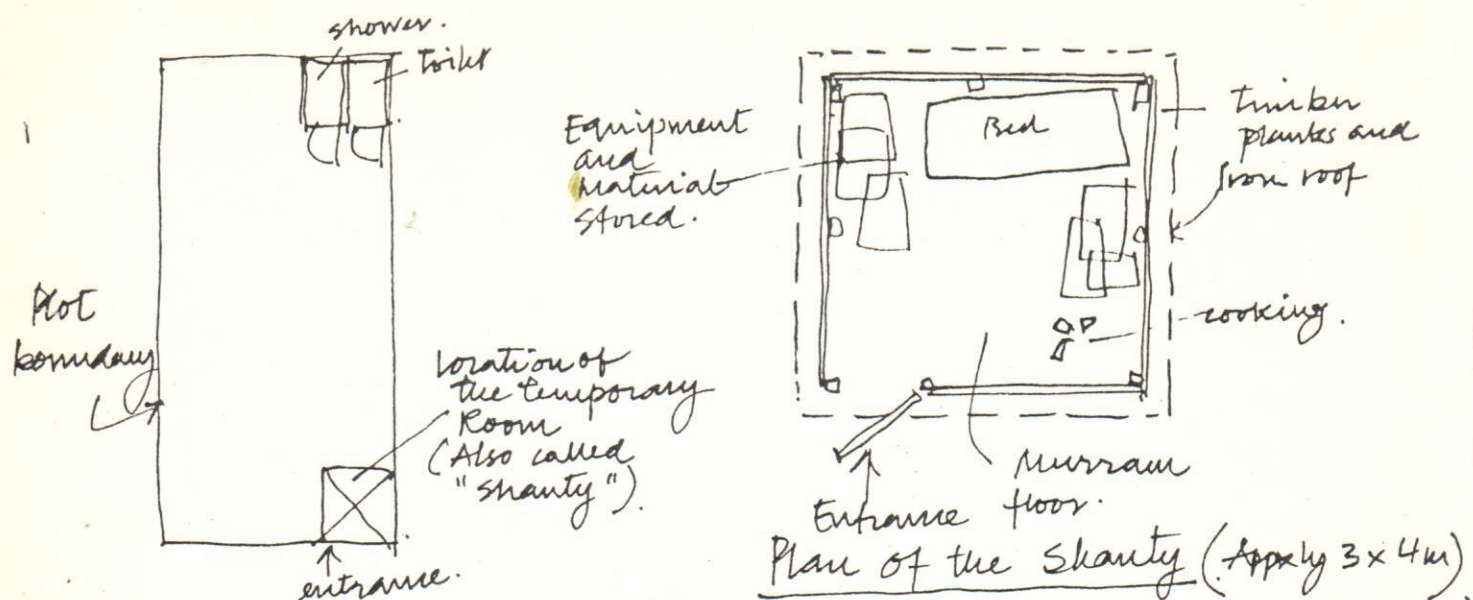 shower.
Toilet
Plot
boundary
Location of
the temporary
Room
(Also called
"Shanty").
entrance.
Equipment
and
material
stored.
Bed
timber
planks and
Iron roof
cooking.
Murram
floor.
Entrance
Plan of the Shanty (Apply 3 x 4m)